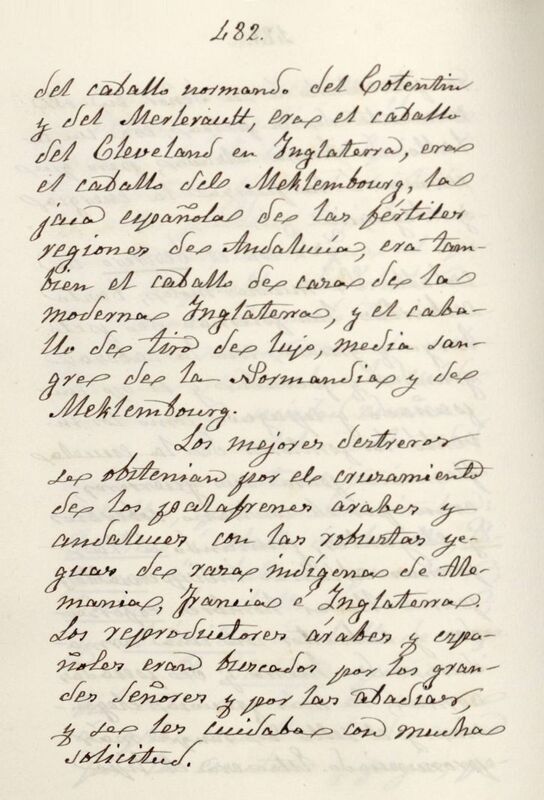 482.
del caballo normando del Cotentin
y del Merlerault, era el caballo
del Cleveland en Inglaterra, era
el caballo del Meklembourg, la
jaca española de las fértiles
regiones de Andalucía, era tam-
bien el caballo de caza de la
moderna Inglaterra, y el caba-
llo de tiro de lujo, media san-
gre de la Normandia y de
Meklembourg.
Los mejores destreros
se obtenian por el cruzamiento
de los palafrenes árabes y
andaluces con las robustas ye-
guas de raza indígena de Ale-
mania, Francia e Inglaterra.
Los reproductores árabes y espa-
ñoles eran buscados por los gran-
des señores y por las abadias,
y se les cuidaba con mucha
solicitud.